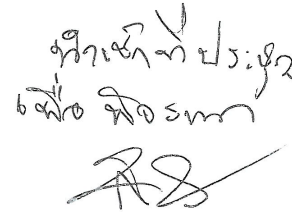 นำเข้าที่ประชุม
เพื่อพิจารณา